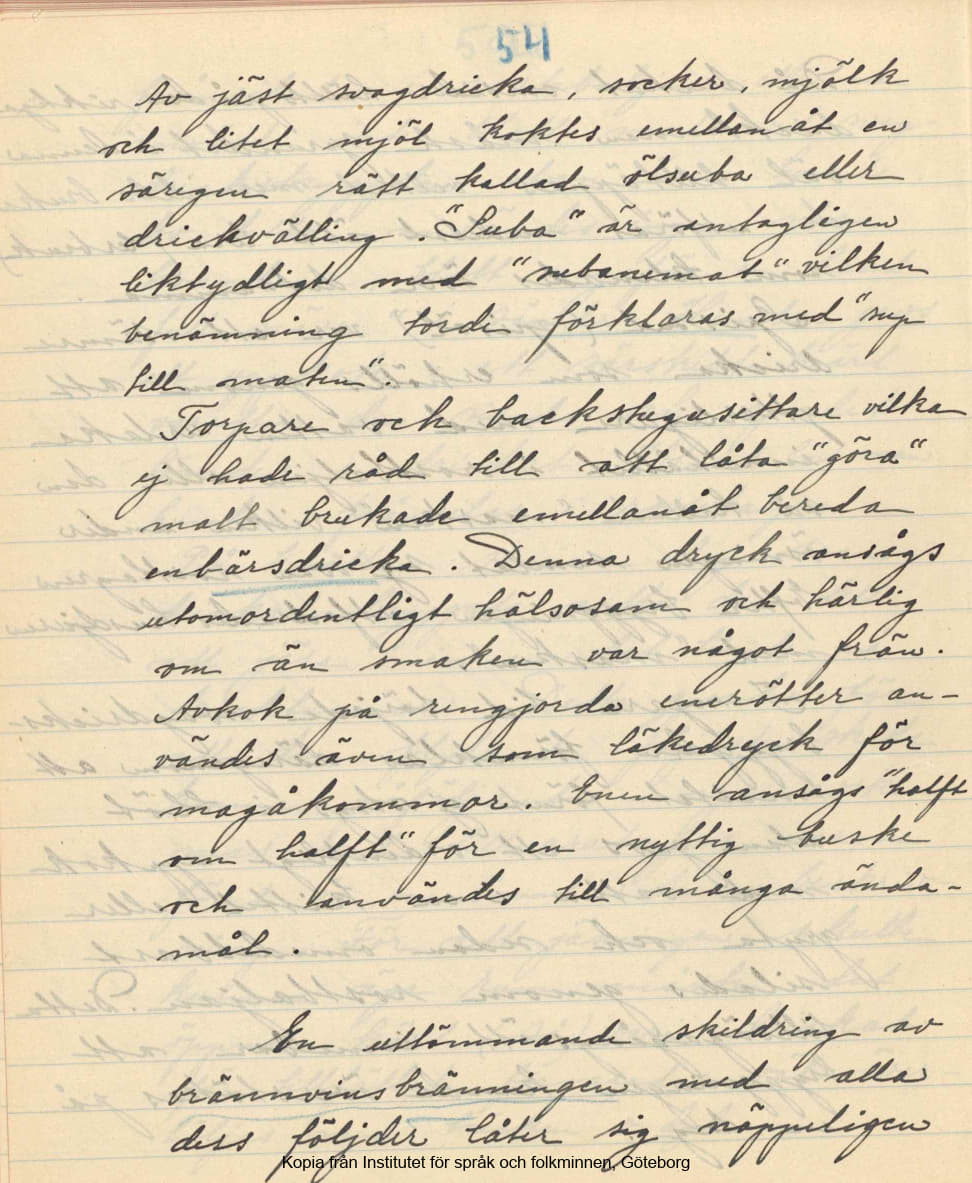 54
Av jäst svagdricka, socker, mjölk
och litet mjöl koktes emellanåt en
säregen rätt kallad ölsuba eller
drickvälling. "Suba" är antagligen
liktydligt med "subanemat" vilken
benämning torde förklaras med "sup
till maten".
Torpare och backstugusittare vilka
ej hade råd till att låta "göra"
malt brukade emellanåt bereda
enbärsdricka. Denna dryck ansågs
utomordentligt hälsosam och härlig
om än smaken var något frän.
Avkok på rengjorda enerötter an-
vändes även som läkedryck för
magåkommor. Enen ansågs "halft
om halft" för en nyttig buske
och användes till många ända-
mål.
En uttömmande skildring av
brännvinsbränningen med alla
dess följder låter sig näppeligen
Kopia från Institutet för språk och folkminnen, Göteborg